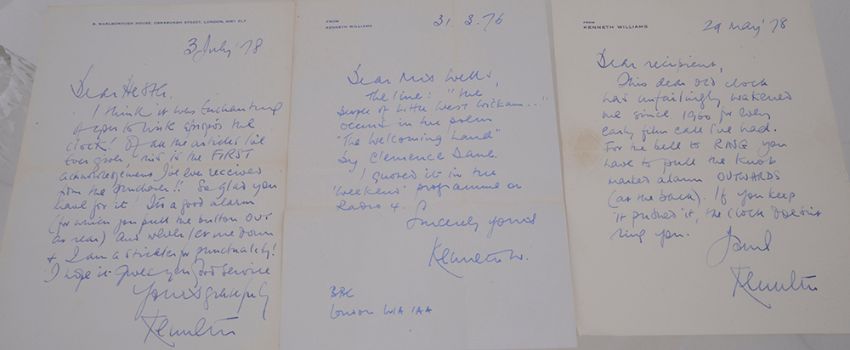 8, MARLBOROUGH HOUSE, OSNABURGH STREET, LONDON, NW1 3LY
3 July '78
Dear Heather,
I think it was Enchanting
of you to write
clock! Of all the articles I've
Ever given, this is the FIRST
acknowledgement I've Ever received
from the purchaser!! So glad you
have for it! It's a good alarm
(for which you pull the button OUT
at rear) and let me down
& I am a stickler for punctuality!
I hope it gives you good service
Yours gratefully
Kenneth
FROM
KENNETH WILLIAMS
31. 3. 76
Dear Miss Wells,
The line: "the
people of Little West Wickham..."
occurs in the poem
"The Welcoming Land"
by Clemence Dane.
I quoted it in the
'Weekend' programme on
Radio 4.
Sincerely yours
Kenneth W.
BBC
London W1A 1AA
FROM
KENNETH WILLIAMS
29 May '78
Dear recipient,
This dear old clock
has unfailingly wakened
me since 1960 for Every
early film call I've had.
For the bell to RING you
have to pull the knob
marked alarm OUTWARDS
(at the back). If you keep
it pushed in, the clock doesn't
ring you.
Yours
Kenneth